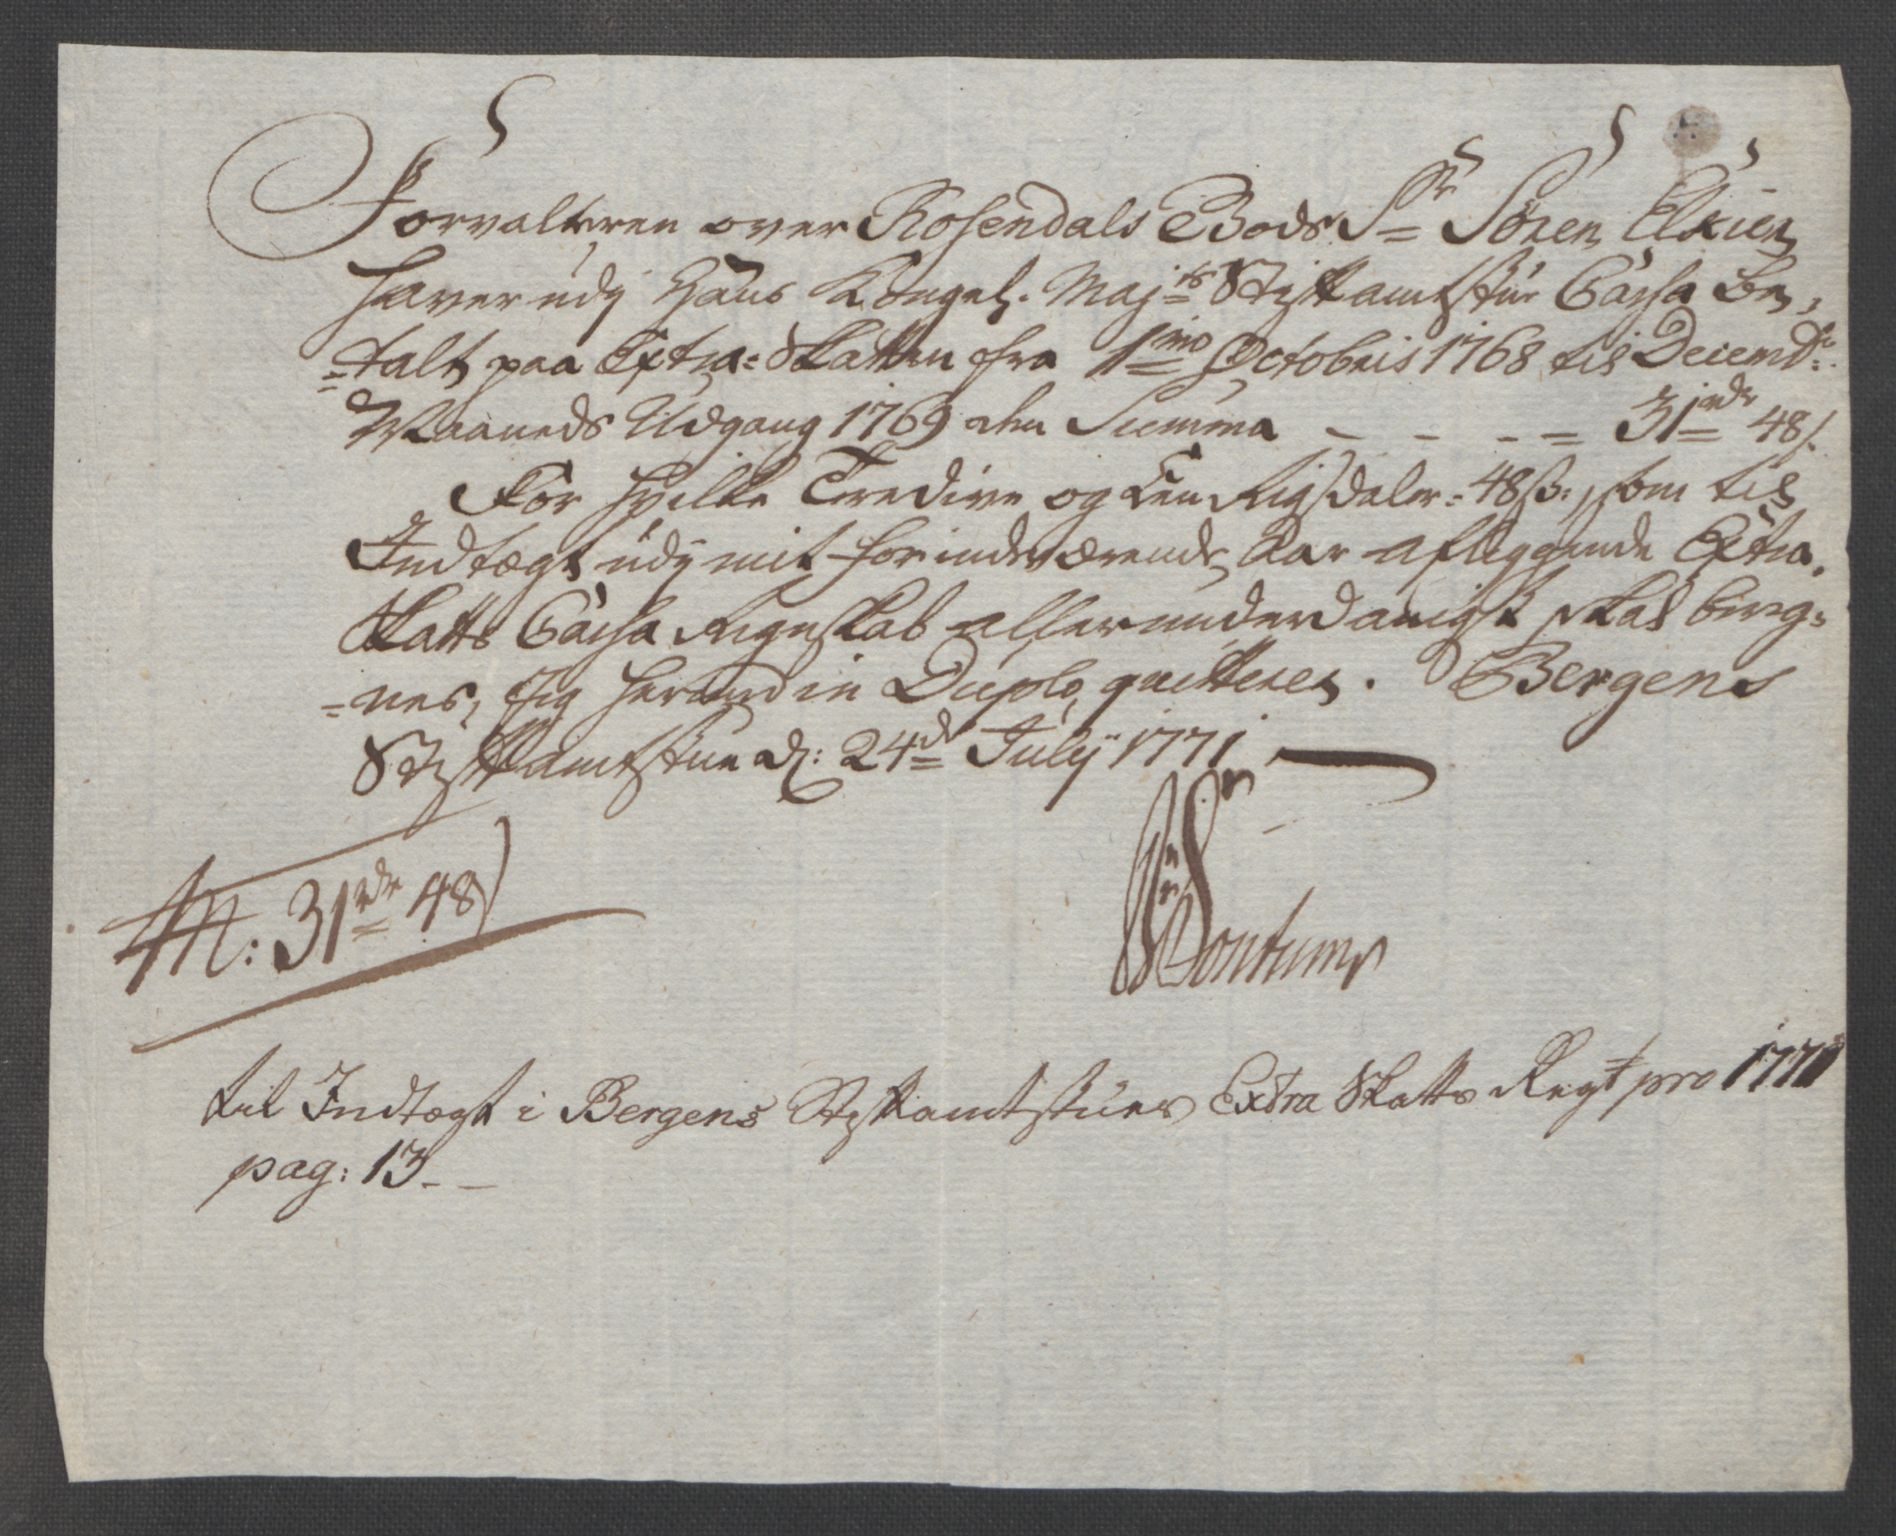 Forvalteren over Rosendals Gods Sr Sören Elkier,
haver udj Hans Kongel. Majts Stiftamtstue Cassa be,
-talt paa Extra-Skatten fra 1mo Octobris 1768 til Decembr:
Maaneds Udgang 1769 den Summa - - - - 31 rdr 48 s.
For hvilke Tredive og een Rigsdaler - 48 s:, som til
Indtægt udj mit for indeværende Aar aflæggende Extra
Skatts Cassa Regnskab allerunderdanigst skal bereg-
-nes, Jeg herved in Duplo, qvitterer. Bergens
Stiftamtstue d: 24de Julij 1771
31 rdr 48 s
til Indtægt i Bergens Stiftamtstues Extra Skatts Regt pro 1771
pag: 13 - -